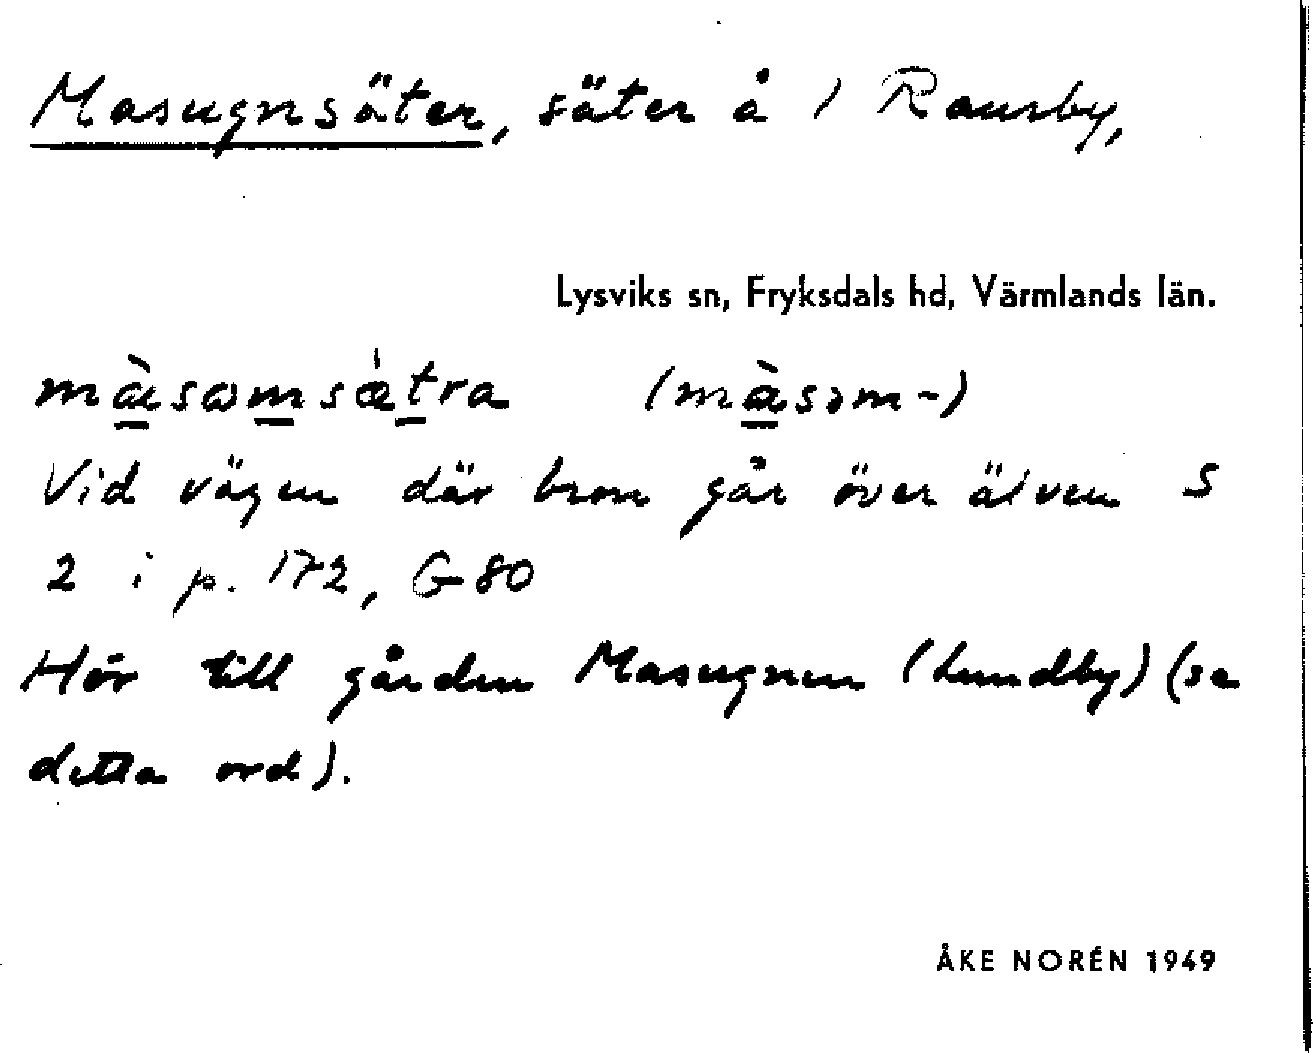 Masugnsäter, säter å 1 Ransby,
Lysviks sn, Fryksdals hd, Värmlands län.
mæ̀sωmsǽtra (mæ̀səm-)
Vid vägen där bron går över älven S
2 i p. 172, G 80
Hör till gården Masugnen (Lundby) (se
detta ord).
ÅKE NORÉN 1949